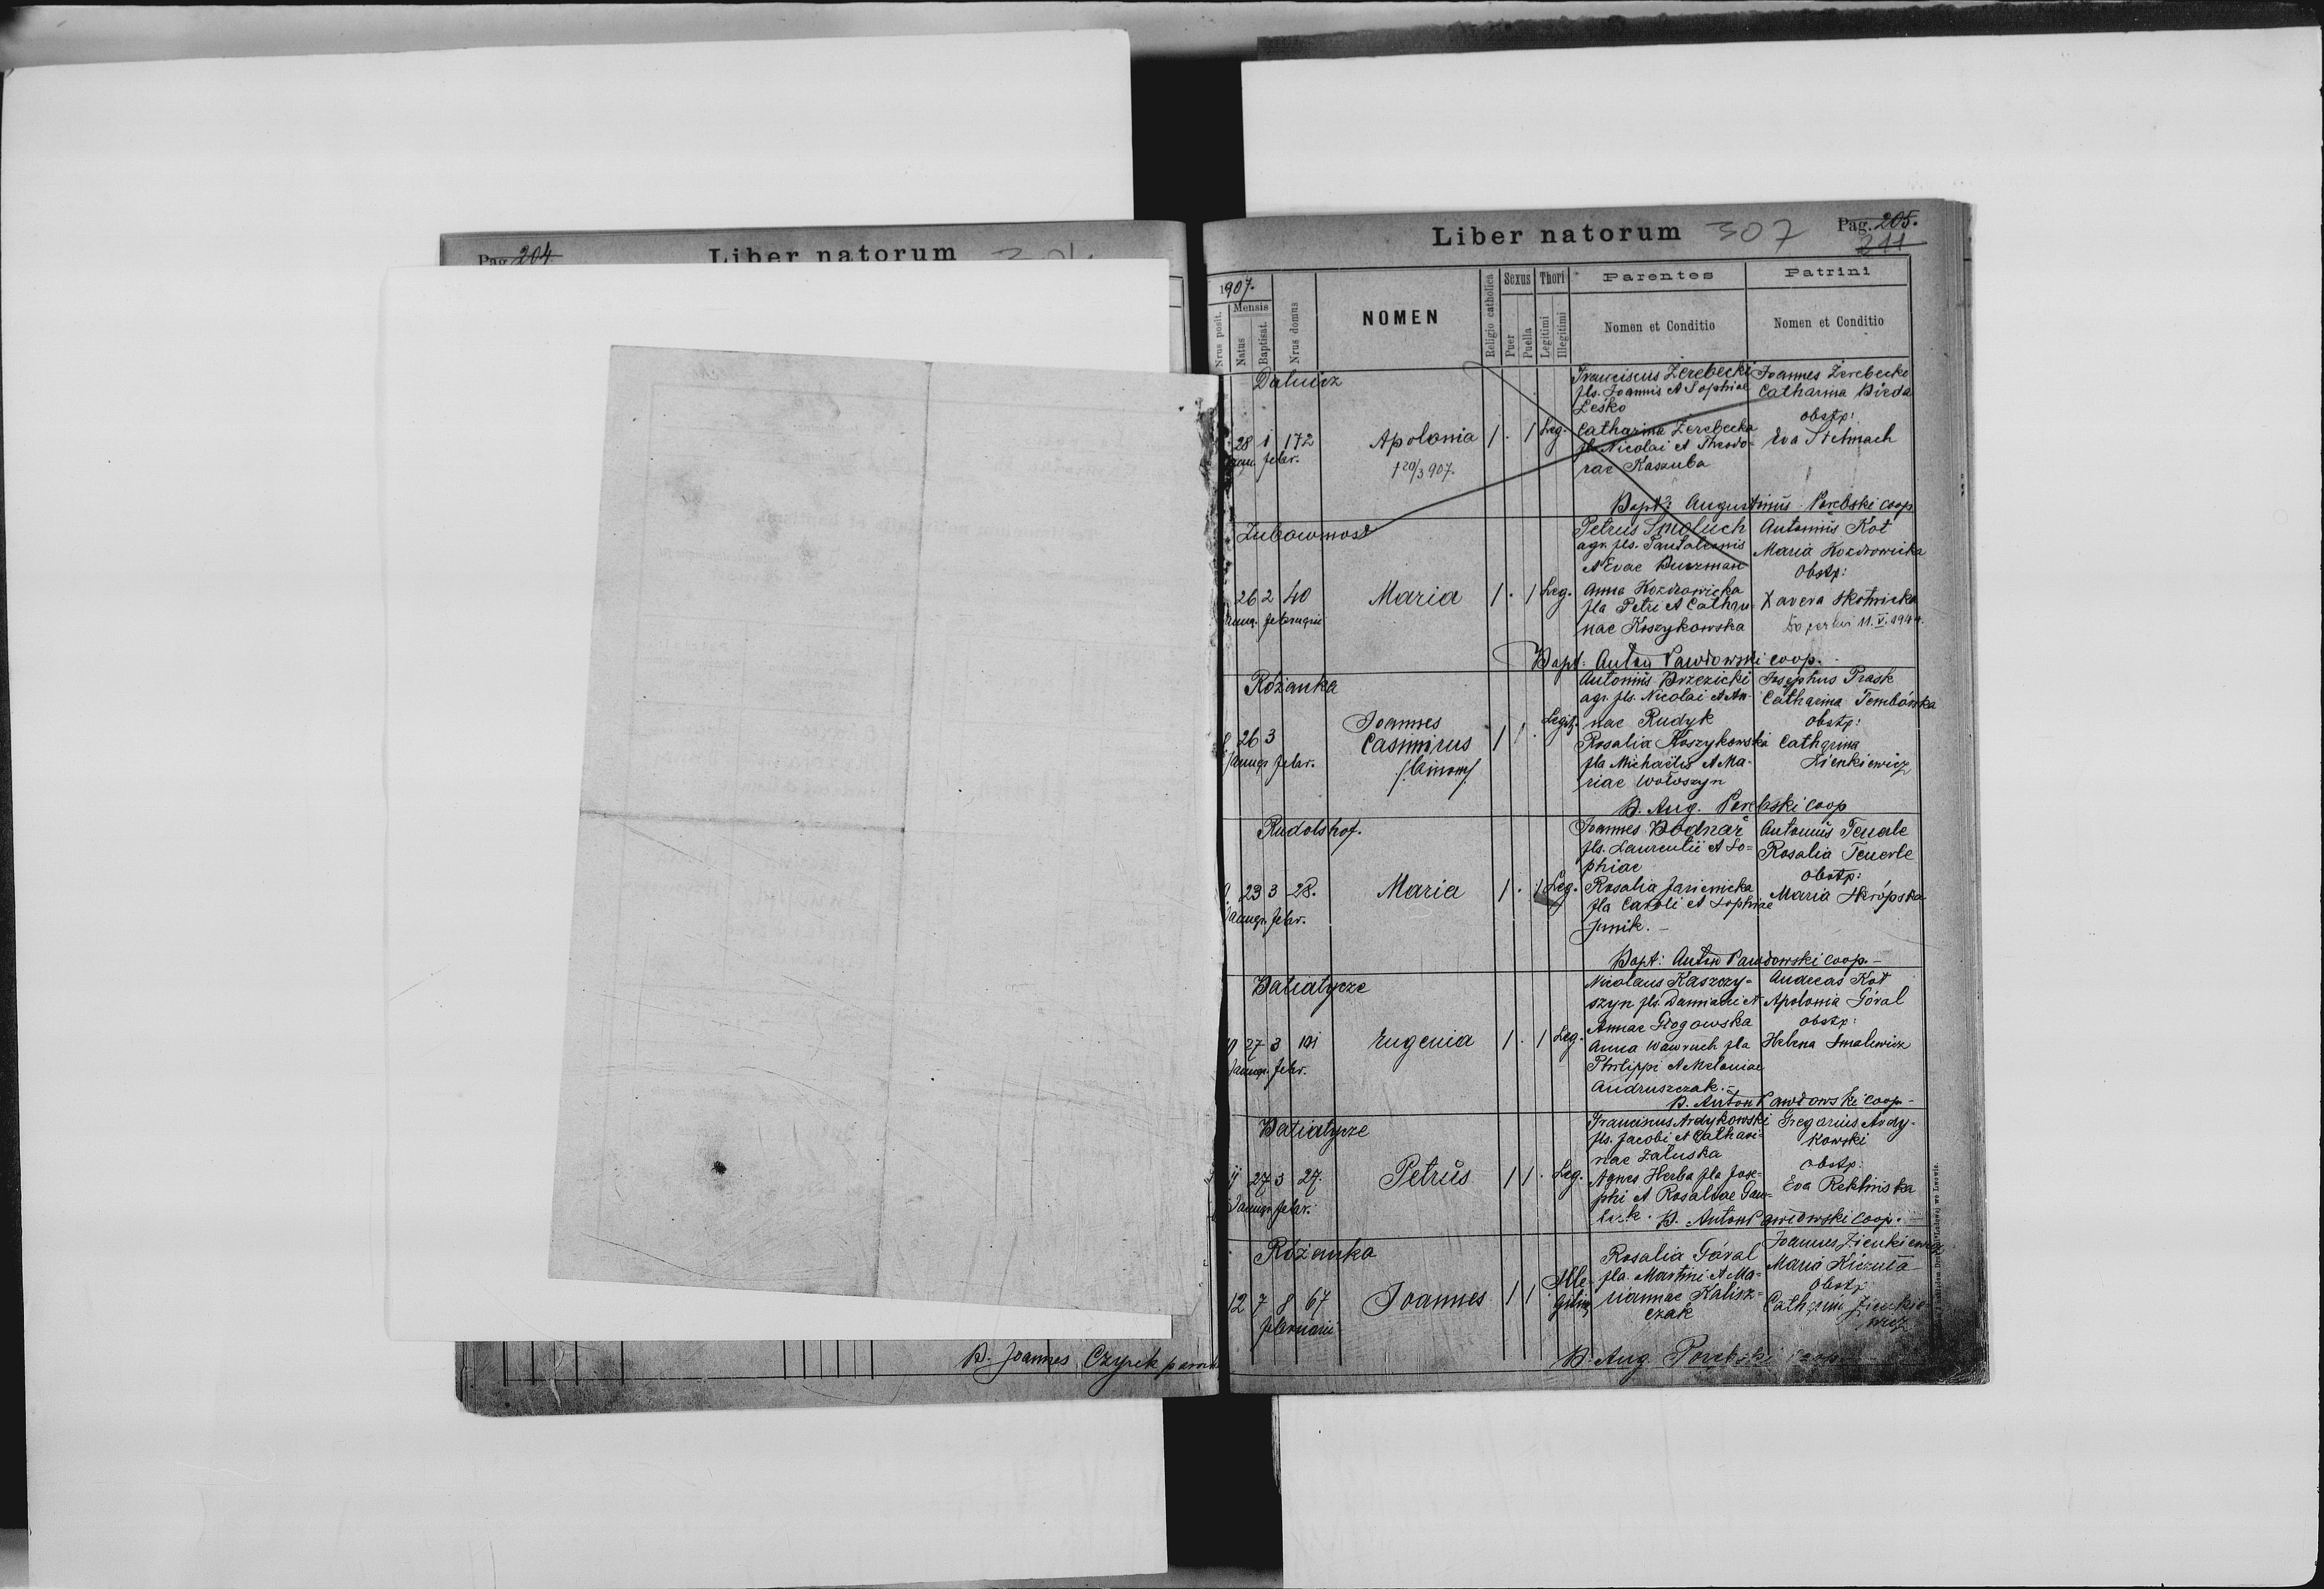 Pag. 204
Liber natorum
B. Joannes Czyrek paroch
Liber natorum 307 Pag. 205.
211
1907.
Nrus posit.
Mensis
Natus
Baptisat.
Nrus domus
NOMEN
Religio catholica
Sexus
Puer
Puella
Thori
Legitimi
Illegitimi
Parentes
Nomen et Conditio
Patrini
Nomen et Conditio
Dalnicz
28 1 172
febr.
Apolonia
† 20/3 907.
1 . 1 Leg.
Franciscus Zerebecki
fls. Joannis et Sophiae
Leśko
Catharina Zerebecka
fla Nicolai et Theodo-
rae Kaszuba
Joannes Zerebecki
Catharina Bieda
obstp:
Eva Stelmach
Bapt: Augustinus Porębski coop
Zubowmost
26 2 40
februarii
Maria
1 . 1 Leg.
Petrus Smoluch
agr. fls. Pantaleonis
et Evae Buczman
Anna Kozdrowicka
fla Petri et Catha-
nae Koszykowska
Antonius Kot
Maria Kozdrowicka
Obstp:
Xavera Skotnicka
11. V. 1944.
Bapt: Anton Pawłowski coop.
Różanka
26 3
Januar. febr.
Joannes
Casimirus
/binom/
1 1 . Legit.
Antonius Brzezicki
agr. fls. Nicolai et An-
nae Rudyk
Rosalia Koszykowska
fla Michaëlis et Ma-
riae Wołoszyn
Josephus Prask
Catharina Tembórska
obstp:
Catharina
Zienkiewicz
B. Aug. Porębski coop
Rudolshof.
23 3 28.
Januar. febr.
Maria
1 . 1 Leg.
Joannes Bodnar
fls. Laurentii et So=
phiae
Rosalia Jasienicka
fla Caroli et Sophiae
Junik. -
Antonius Teuerle
Rosalia Teuerle
obstp:
Maria Skrópska
Bapt: Anton Pawłowski coop. -
Batiatycze
10 27 3 101
Januar. febr.
Eugenia
1 . 1 Leg.
Nicolaus Kaszczy-
szyn fls. Damiani et
Annae Głogowska
Anna Wawruch fla
Philippi et Melaniae
Andruszczak. -
Andreas Kot
Apolonia Góral
obstp:
Helena Smalewicz
B. Anton Pawłowski coop -
Batiatycze
11 27 3 27.
Januar. febr.
Petrus
1 1 . Leg.
Franciscus Ardykowski
fls. Jacobi et Cathari-
nae Załuska
Agnes Herba fla Jose=
phi et Rosaliae Gaw=
Gregorius Ardy-
kowski
Obstp:
Eva Reklińska
B. Anton Pawłowski coop. -
Różanka
12 7 8 67
februarii
Joannes
1 1 . Ille-
gitim
Rosalia Góral
fla. Martini et Ma=
riannae Kalisz=
czak
Joannes Zienkiewicz
Maria Kiczuła
Obstp
Catharina Zienkie-
wicz
B. Aug. Porębski coop